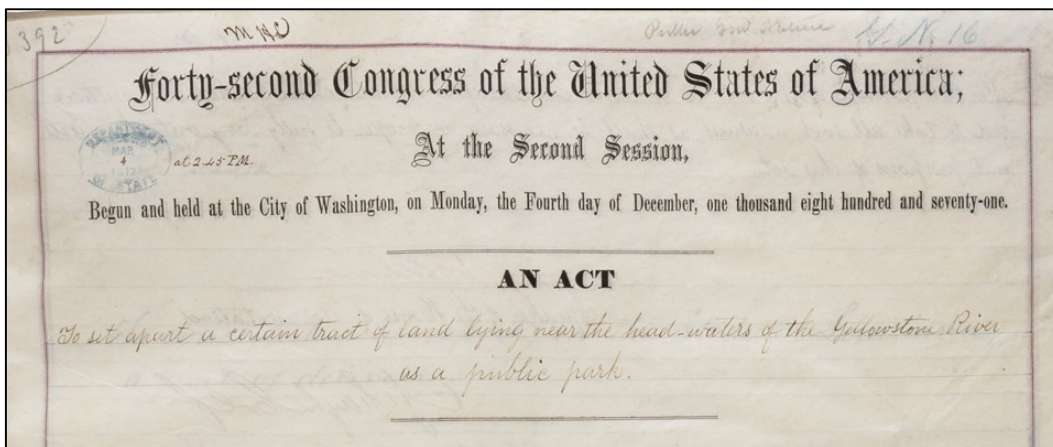 392
Forty-second Congress of the United States of America;
At the Second Session,
DEPARTMENT
MAR
4
1872
OF STATE
at 2.45 P.M.
Begun and held at the City of Washington, on Monday, the Fourth day of December, one thousand eight hundred and seventy-one.
AN ACT
To set apart a certain tract of land lying near the head-waters of the Yellowstone River
as a public park.